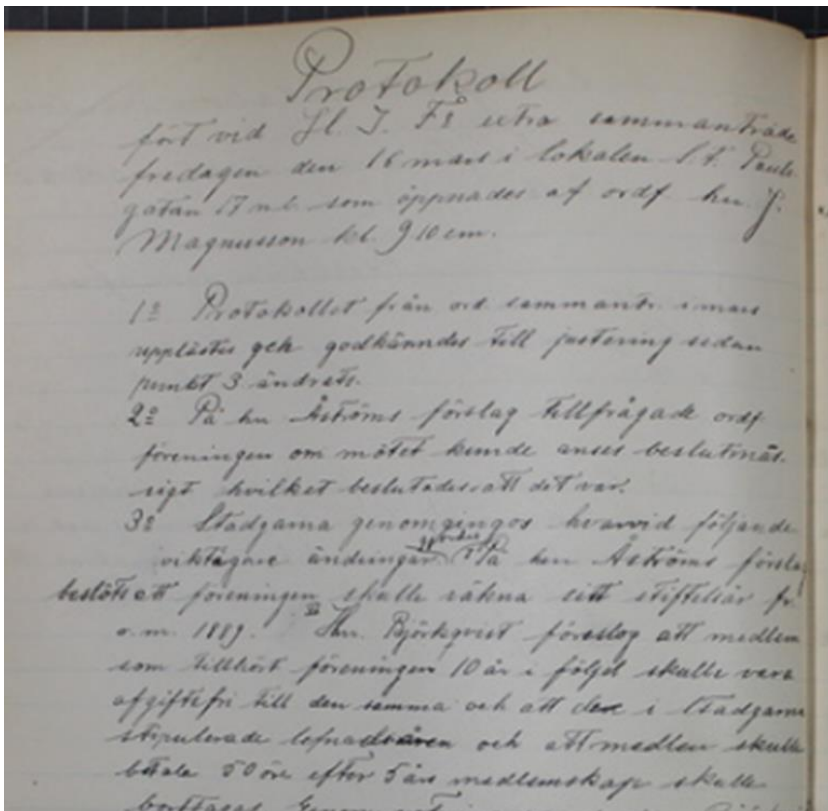 Protokoll
fört vid Gl. I. Fs extra sammanträde
fredagen den 16 mars i lokalen St. Pauls
gatan 17 n.b. som öppnades af ordf hr. J.
Magnusson kl. 9 10 em.
1º Protokollet från ord sammantr. i mars
upplästes och godkänndes till justering sedan
punkt 3 ändrats.
2º På hr Åströms förslag tillfrågade ordf
föreningen om mötet kunde anses beslutmäs-
sigt hvilket beslutades att det var.
3º Stadgarna genomgingos hvarvid följande
viktigare ändringar gjordes I På herr Åströms förslag
beslöts att föreningen skulle räkna sitt stiftelsår fr.
o. m. 1889. II Herr. Björkqvist föreslog att medlem
som tillhört föreningen 10 år i följd skulle vara
afgiftsfri till den samma och att den i stadgarna
stipulerade och att medlem skulle
betala 50 öre efter 5 års medlemskap skulle
borttagas